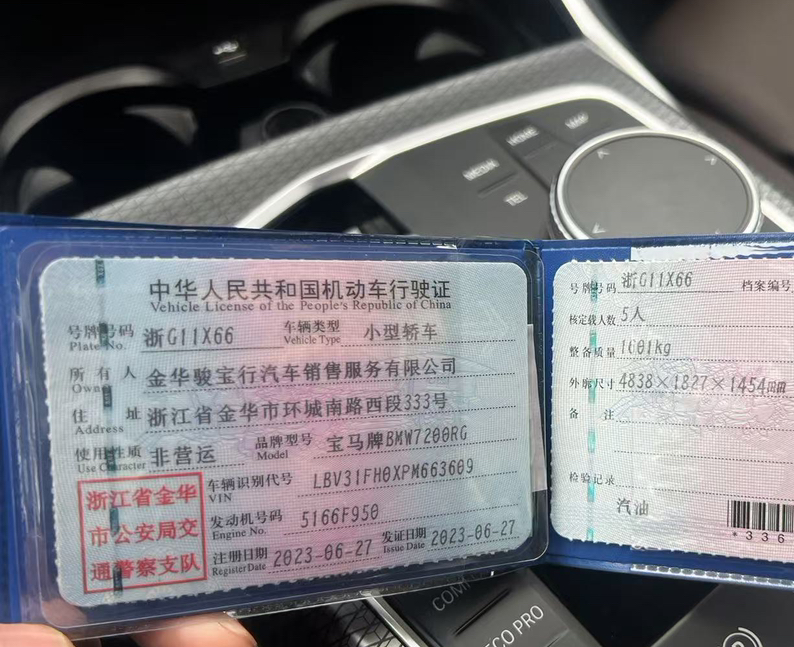 MEDIA
HOME
MAP
TEL
中华人民共和国机动车行驶证
Vehicle License of the People's Republic of China
号牌号码 浙G11X66 车辆类型 小型轿车
Plate No. Vehicle Type
所有人 金华骏宝行汽车销售服务有限公司
Owner
住址 浙江省金华市环城南路西段333号
Address
使用性质 非营运 品牌型号 宝马牌BMW7200RG
Use Character Model
浙江省金华
市公安局交
通警察支队
车辆识别代号 LBV31FH0XPM663609
VIN
发动机号码 5166F950
Engine No.
注册日期 2023-06-27 发证日期 2023-06-27
Register Date Issue Date
号牌号码 浙G11X66 档案编号
核定载人数 5人
整备质量 1601kg
外廓尺寸 4838×1827×1454mm
备注
检验记录
汽油
*336
ECO PRO